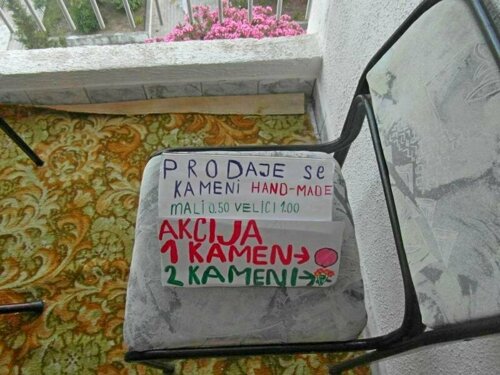 PRODAJE se
KAMENI HAND-MADE
MALI 0.50 VELICI 1.00
AKCIJA
1 KAMEN→
2 KAMENI→